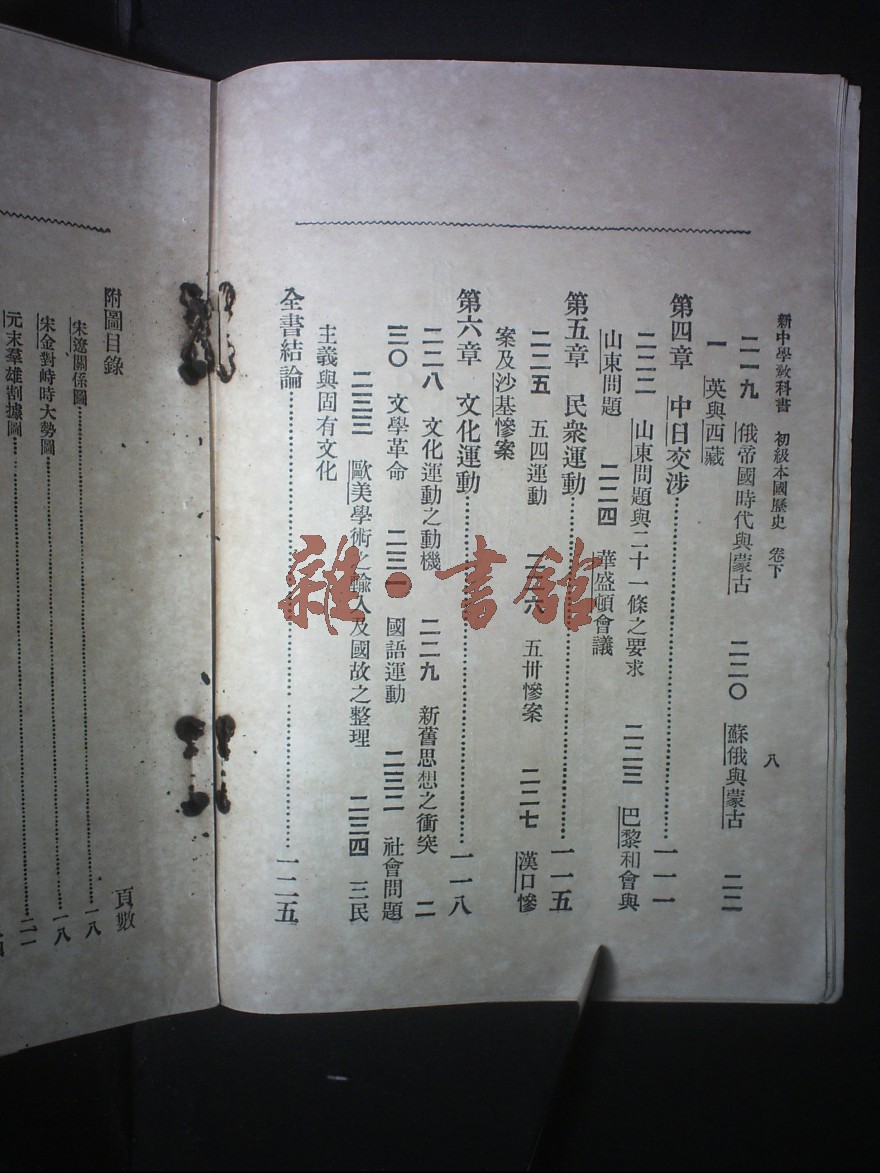 新中學敎科書　初級本國歷史　卷下
八
二一九　俄帝國時代與蒙古　二二〇　蘇俄與蒙古　二二
一　英與西藏
第四章　中日交涉……一一一
二二二　山東問題與二十一條之要求　二二三　巴黎和會與
山東問題　二二四　華盛頓會議
第五章　民衆運動……一一五
二二五　五四運動　二二六　五卅慘案　二二七　漢口慘
案及沙基慘案
第六章　文化運動……一一八
二二八　文化運動之動機　二二九　新舊思想之衝突　二
三〇　文學革命　二三一　國語運動　二三二　社會問題
二三三　歐美學術之輸入及國故之整理　二三四　三民
主義與固有文化
全書結論……一二五
附圖目錄
頁數
宋遼關係圖……一八
宋金對峙時大勢圖……一八
元末羣雄割據圖……二一
雜·書館